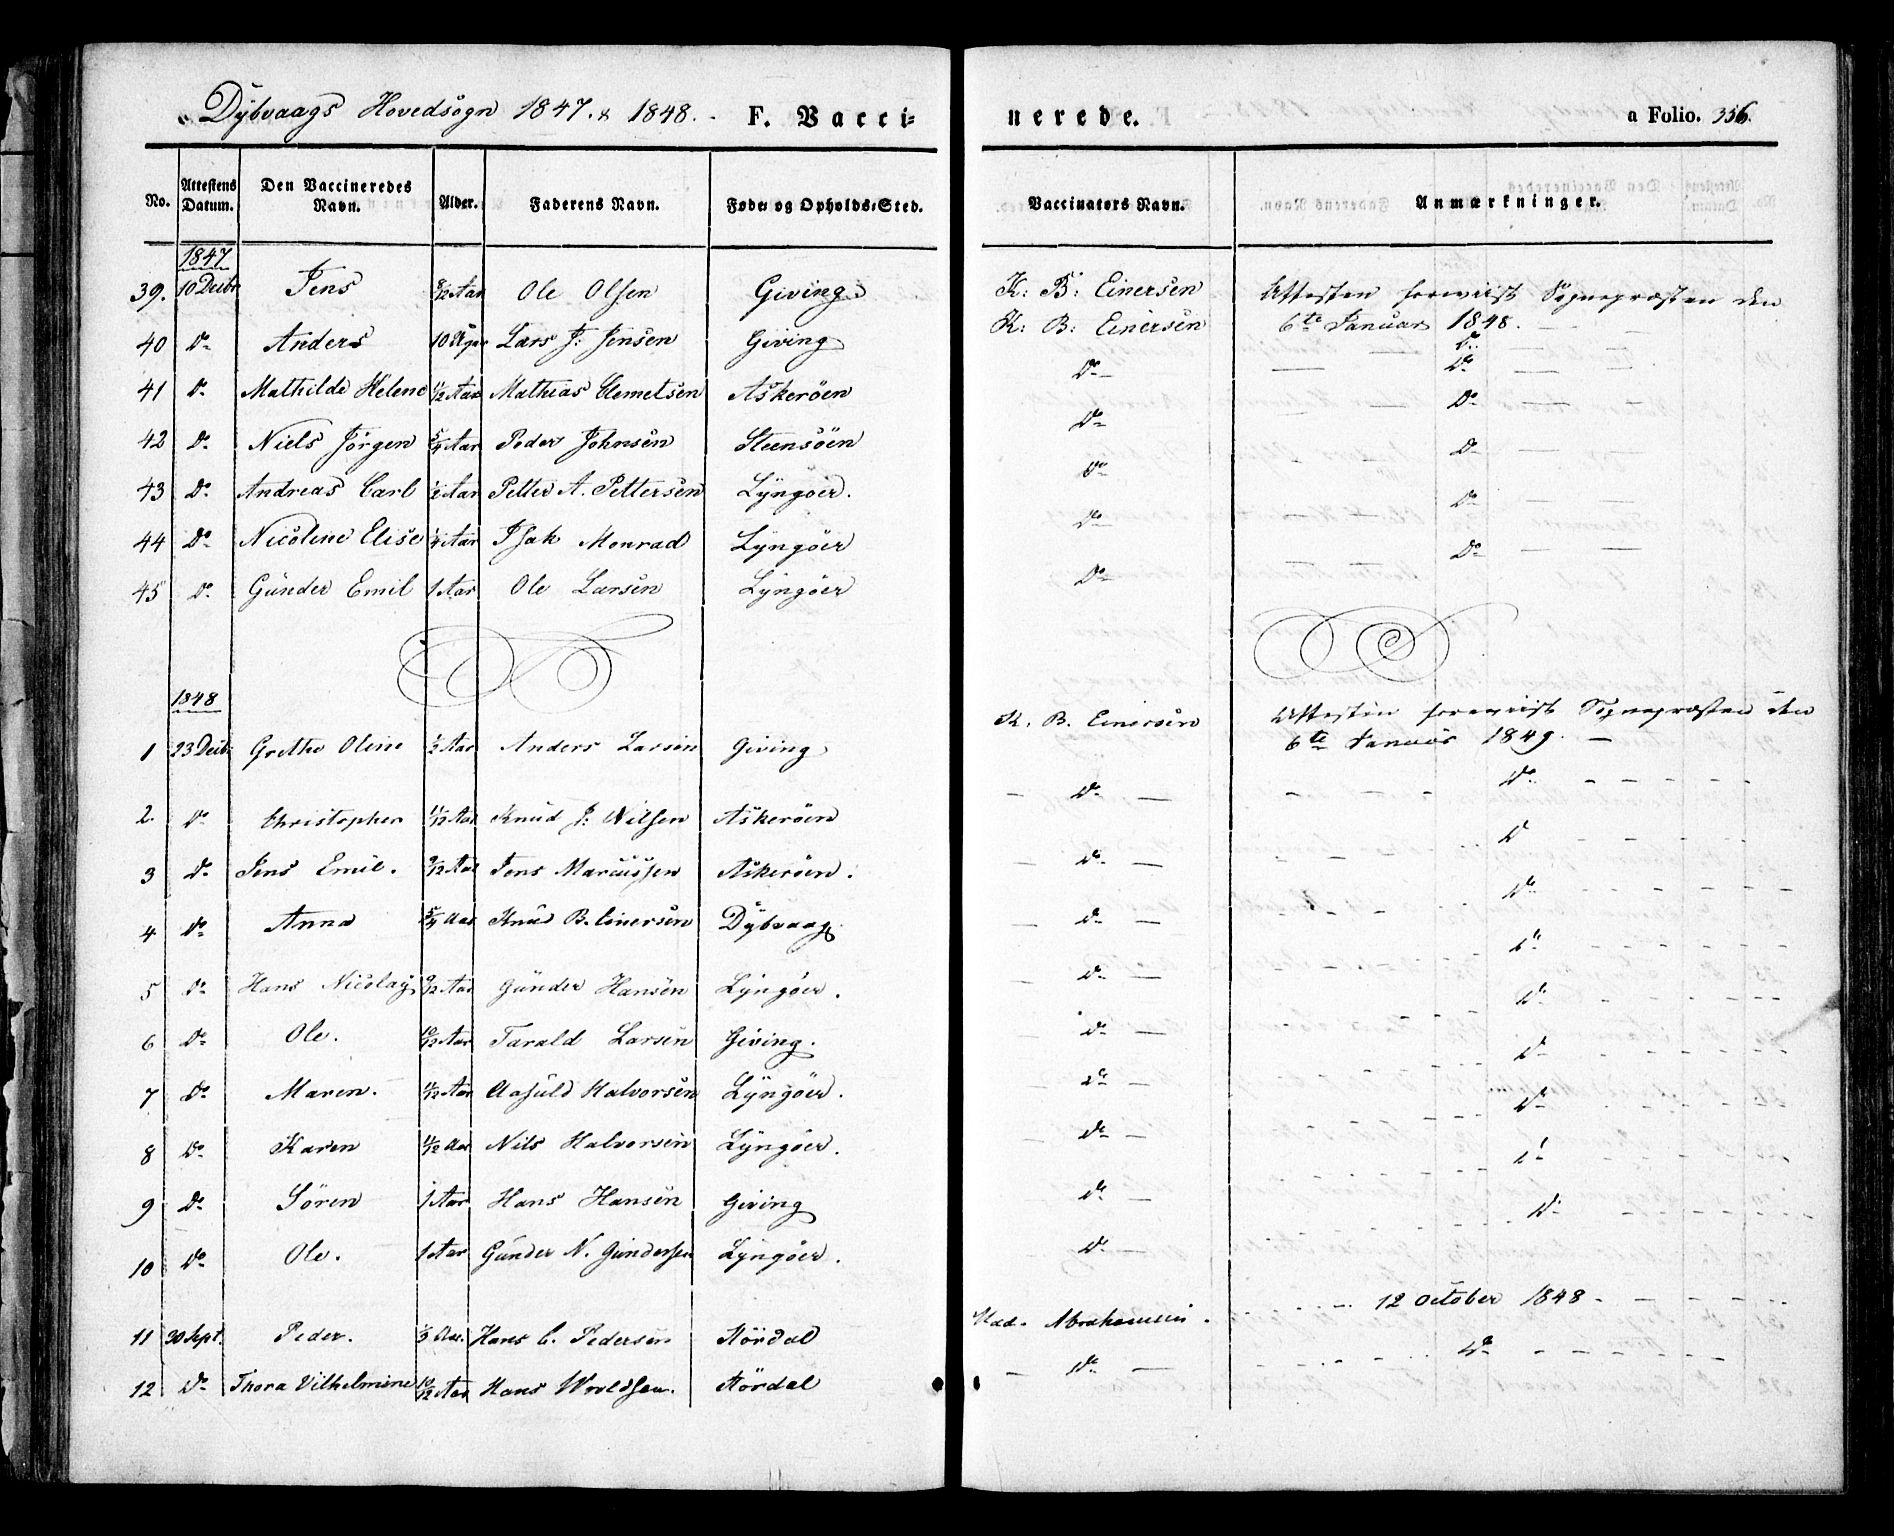 Dÿbvaags Hovedsogn 1847. & 1848. - F. Vacci-nerede. a Folio. 356.
No. Attestens Datum. Den Vaccineredes Navn. Alder. Faderens Navn. Føde- og Opholds-Sted. Vaccinators Navn. Anmærkninger.
1847
39. 10 Decbr Jens 8/12 Aar Ole Olsen Giving K: B: Einersen Attesten foreviist Sognepræsten den
40 Do Anders Lars J: Jensen Giving K: B: Einersen 6te Januar 1848.
41 Do Mathilde Helene 11/12 Aar Mathias Clemetsen Askeröen Do Do
42 Do Niels Jörgen 5/4 Aar Peder Johnsen Steensöen Do Do
43 Do Andreas Carl 1/2 Aar Petter A. Pettersen Lÿngöer. Do Do
44 Do Nicoline Elise 1/4 Aar Isak Monrad Lÿngöer Do Do
45 Do Günder Emil 1 Aar Ole Larsen Lÿngöer Do Do
1848
1 23 Decbr Grethe Oline 1/2 Aar Anders Larsen Giving K. B. Einersen Attesten foreviist Sognepræsten den
6te Januar 1849.
2. Do Christopher 11/12 Aar Knud J: Nilsen Askeröen Do Do
3 Do Jens Emil. 9/12 Aar Jens Marcussen Askeröen. Do D
4 Do Anna 5/4 Aar Knud B. Einersen Dÿbvaag Do Do
5 Do Hans Nicolaÿ 9/12 Aar Günder Hansen Lÿngöer. Do Do
6 Do Ole. 10/12 Aar Tarald Larsen Giving. Do Do
7 Do Maren. 11/12 Aar Aasuld Halvorsen Lÿngöer. Do Do
8 Do Karen 11/12 Aar Nils Halvorsen Lÿngöer. Do Do
9 Do Sören 1 Aar Hans Hansen Giving Do Do
10 Do Ole. 1 Aar Günder N. Gundersen Lÿngöer. Do Do
11 30 Sept. Peder. 1/3 Aar. Hans C. Pedersen Nördal Mad. Abrahamsen. 12 October 1848
12 Do Thora Vilhelmine 10/12 Aar Hans Wroldsen. Nördal Do Do